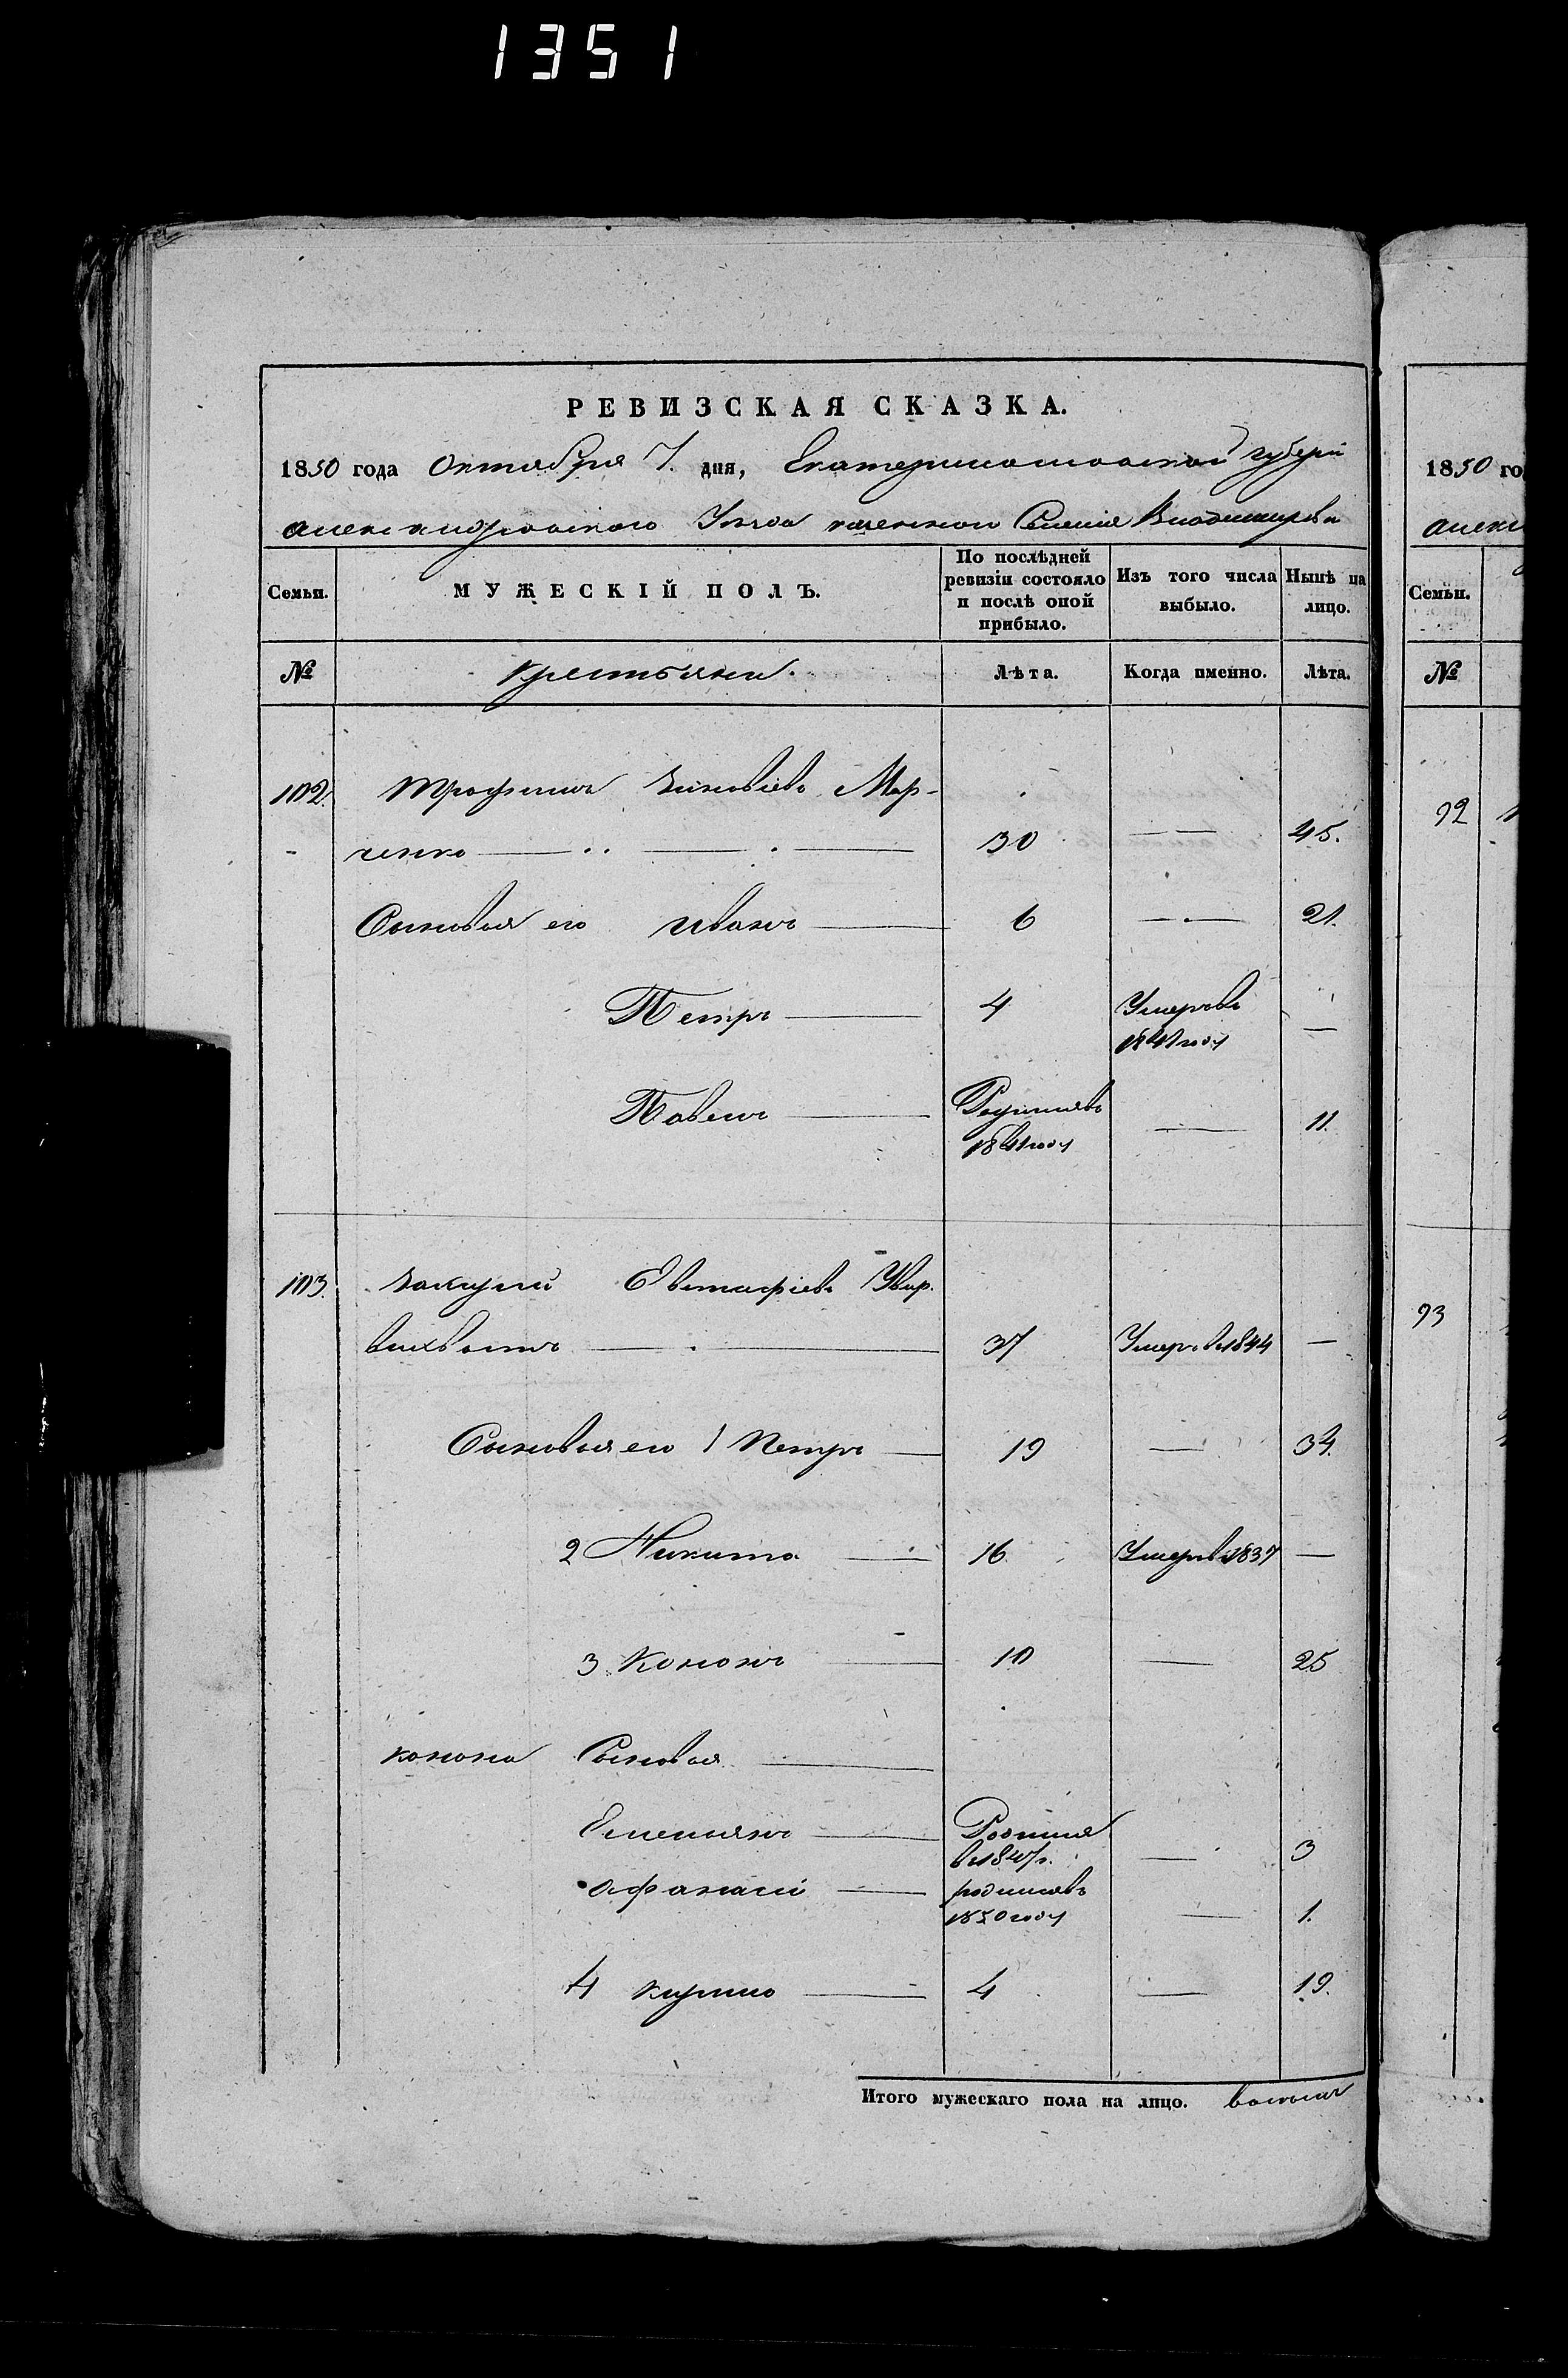 1351
РЕВИЗСКАЯ СКАЗКА.
1850 года Октября 7. дня, Екатеринославской губерніи
Александровскаго Уѣзда казенного Селенія Владимировки
Семьи. МУЖЕСКІЙ ПОЛЪ. По послѣдней ревизіи состояло и послѣ оной прибыло. Изъ того числа выбыло. Нынѣ на лицо.
№ Крестьяни. Лѣта. Когда именно. Лѣта.
102. Трофимъ Зиновіевъ Мар-
ченко 30 — 45.
Сыновья его Иванъ 6 — 21.
Петръ 4 Умеръ въ 1841 году —
Павелъ Родился въ 1841 году — 11.
103. Евстафіевъ
37 Умеръ въ 1844 —
Сыновья его 1 Петръ 19 — 34.
2 Никита 16 Умеръ въ 1837 —
3 Кононъ 10 — 25
Конона Сыновья
Емельянъ Родился въ 1847 г. — 3
Афанасій родился въ 1850 году — 1.
4 Кирило 4 — 19.
Итого мужескаго пола на лицо. восемь
1850 го
Алекс
Семьи.
№
92
93